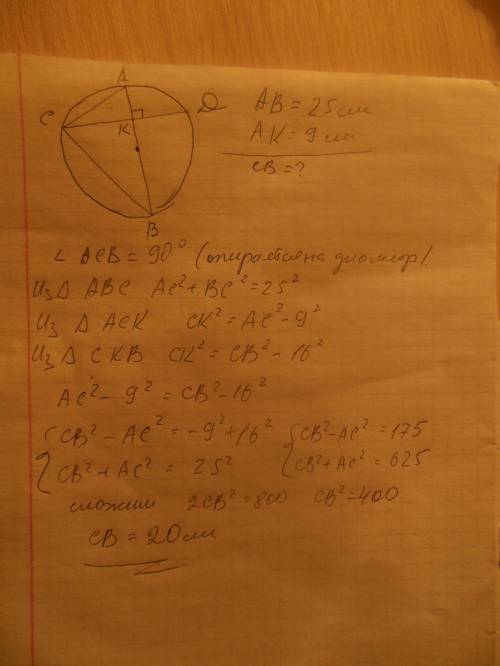 A
C
D
K
B
AB = 25 см
AK = 9 см
CB = ?
∠ ACB = 90° (опирается на диаметр).
Из Δ ABC AC² + BC² = 25²
Из Δ ACK CK² = AC² - 9²
Из Δ CKB CK² = CB² - 16²
AC² - 9² = CB² - 16²
{ CB² - AC² = -9² + 16² { CB² - AC² = 175
CB² + AC² = 25² CB² + AC² = 625
сложим 2CB² = 800 CB² = 400
CB = 20 см